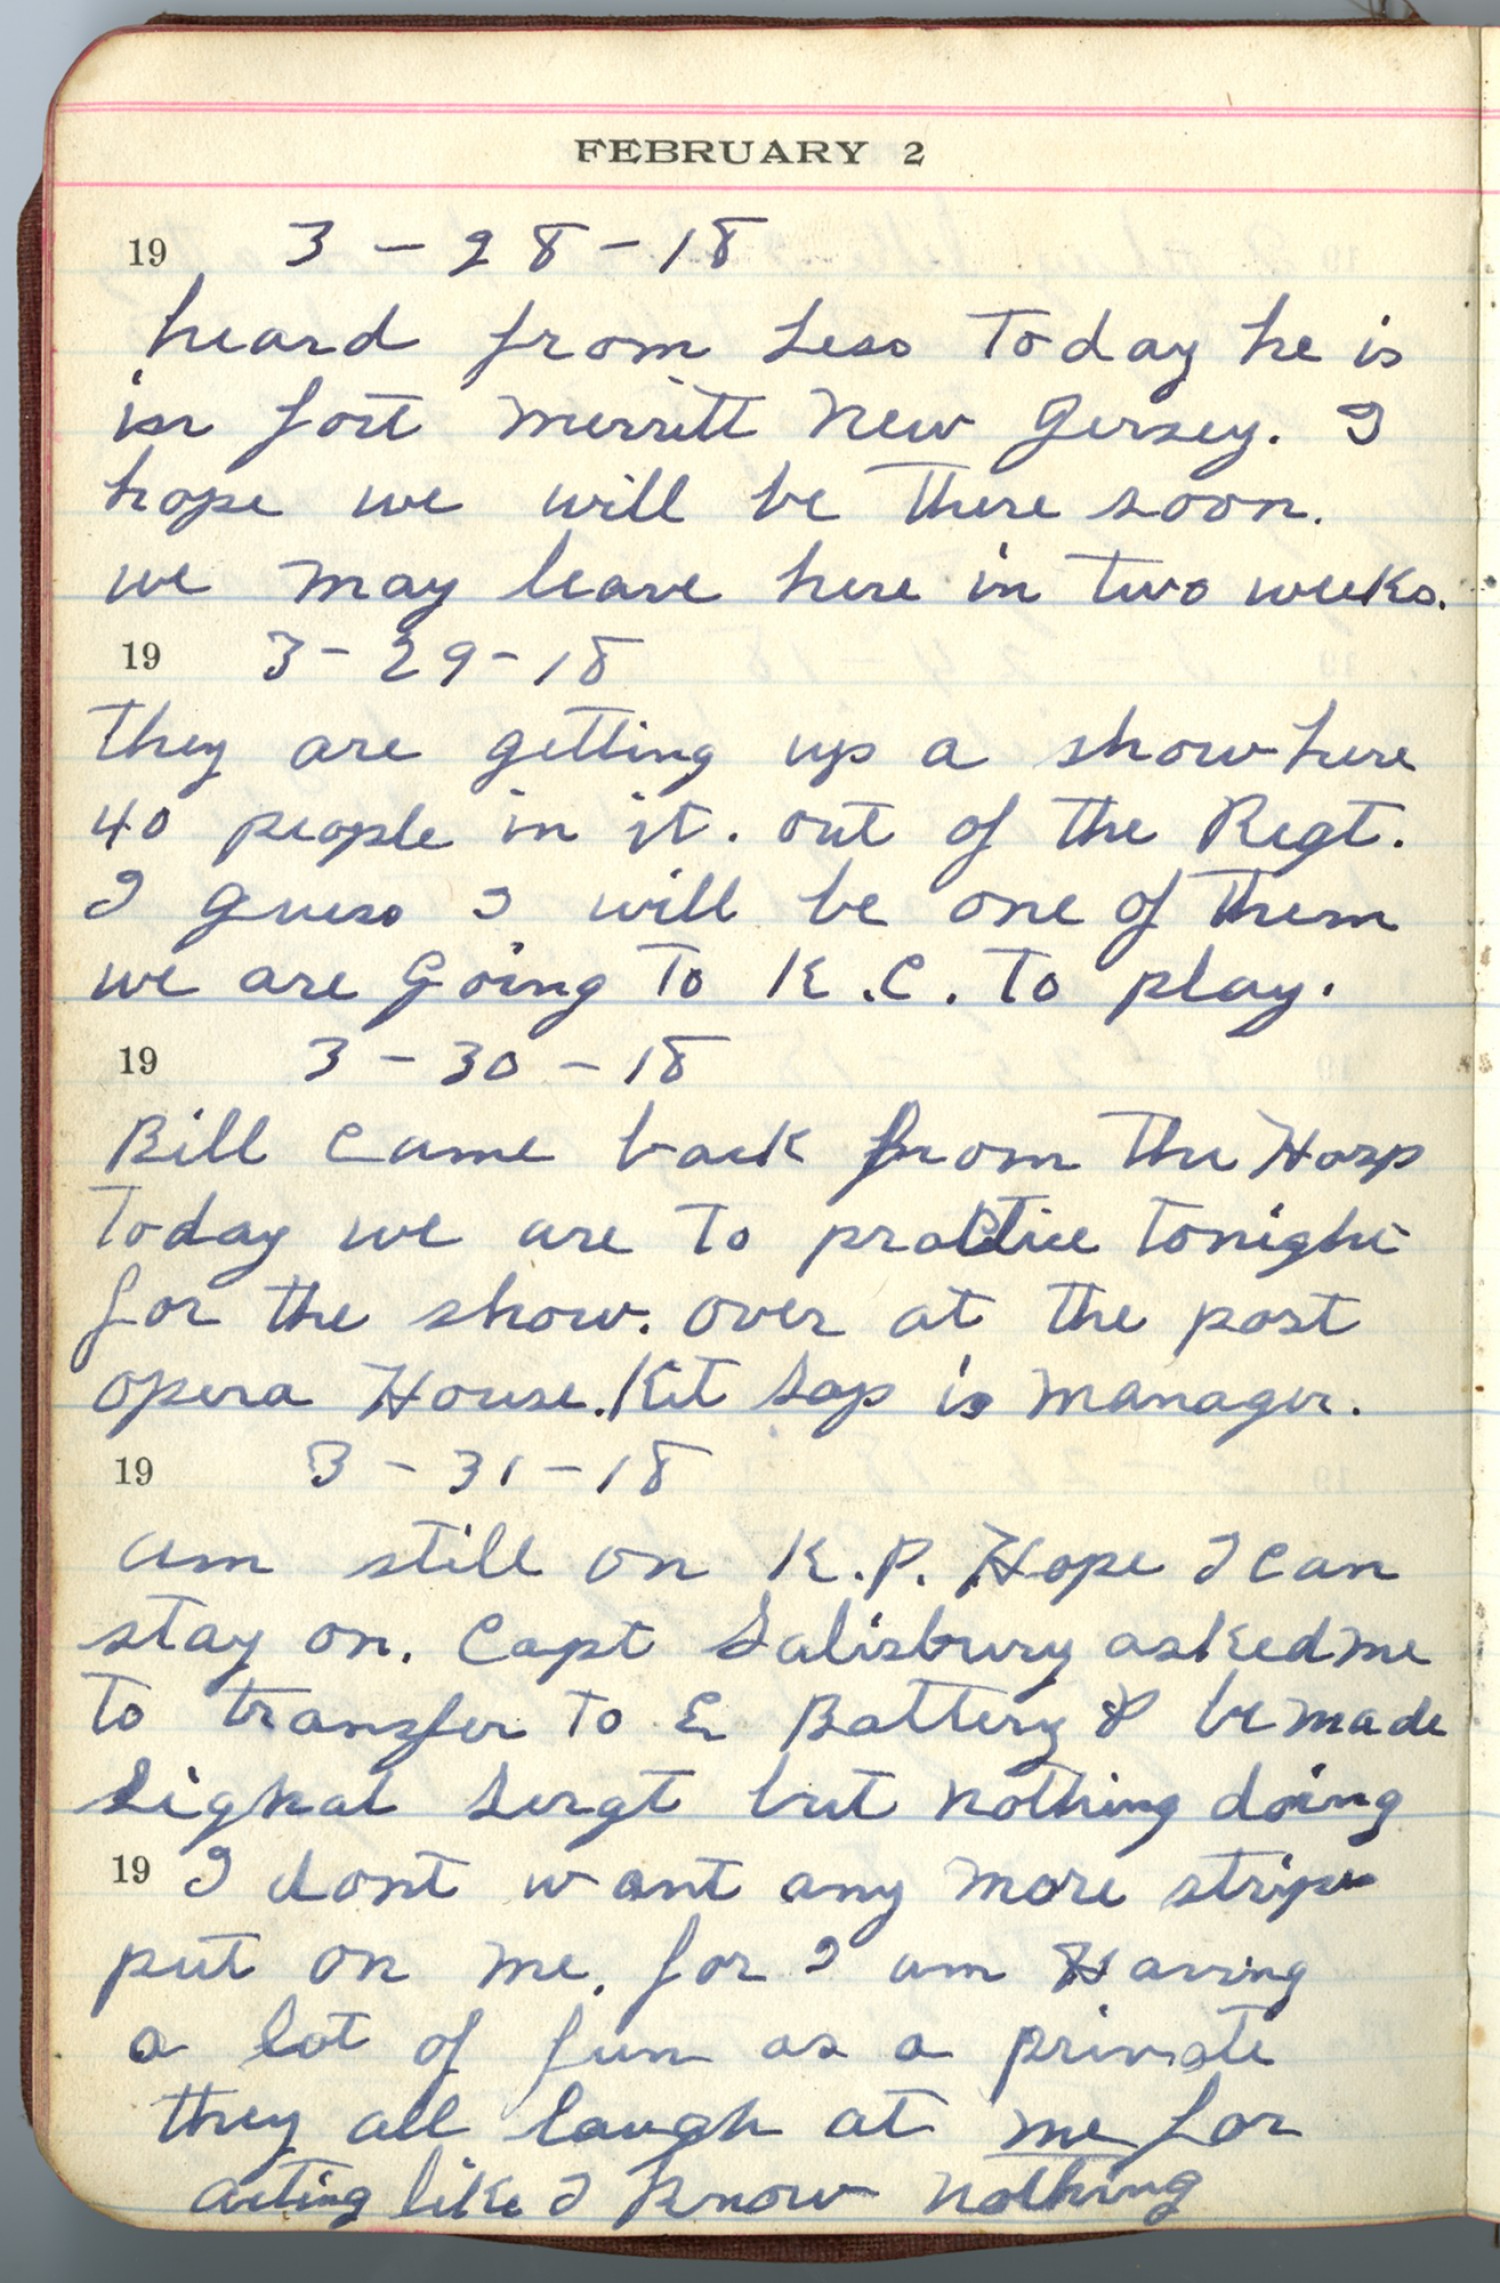 FEBRUARY 2
19 3-28-18
heard from Less today he is
in fort merritt New Jersey. I
hope we will be there soon.
we may leave here in two weeks.
19 3-29-18
They are getting up a show here
40 people in it. out of the Regt.
I guess I will be one of them
we are going to K.C. to play.
19 3-30-18
Bill came back from the Hosp
today we are to practice tonight
for the show. over at the post
opera House. Kit Sap is manager.
19 3-31-18
am still on K.P. Hope I can
stay on. Capt Salisbury asked me
to transfer to E Battery & be made
Signal Sergt but nothing doing
19 I dont want any more stripes
put on me. for I am Having
a lot of fun as a private
they all laugh at me for
acting like I know nothing